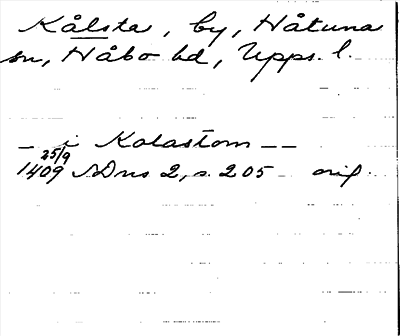 Kålsta, by, Håtuna
sn, Håbo hd, Upps. l.
— i Kalastom ——
25/9
1409 SDns 2, s. 205 orig.